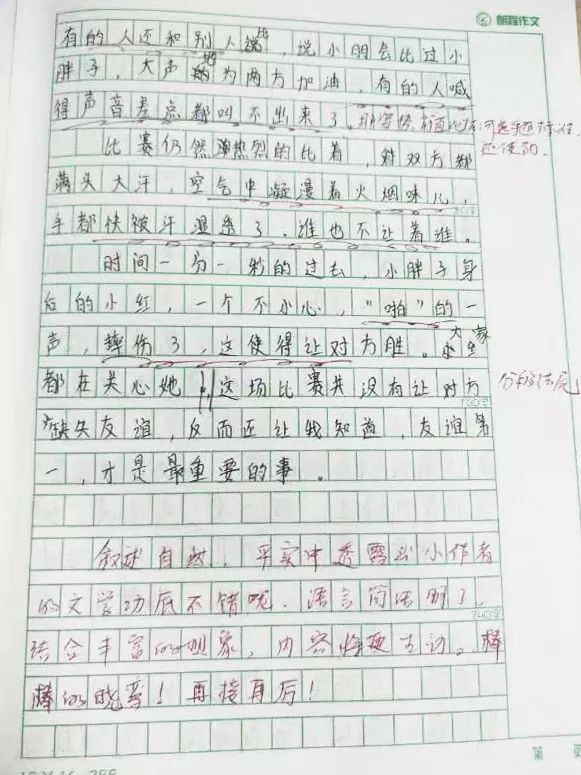 朗程作文
有的人还和别人说，说小明会比过小
胖子，大声地为两方加油，有的人喊
得声音差点都叫不出来了。
比赛仍然热烈的比着，对双方都
满头大汗，空气中凝漫着火烟味儿，
手都快被汗湿透了，谁也不让着谁。
时间一分一秒的过去，小胖子身
后的小红，一个不小心，“啪”的一
声，摔伤了，这使得让对方胜。大家
都在关心她，这场比赛并没有让对方
分段结尾
缺失友谊，反而还让我知道，友谊第
一，才是最重要的事。
叙述自然，平实中透露出小作者
的文学功底不错呢，语言简洁明了，
结合丰富的想象，内容
棒的晓 ！再接再厉！
第 页